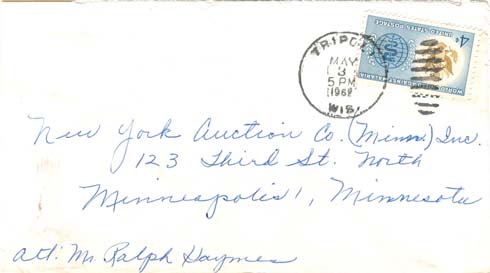 TRIPOLI
MAY
3
5 PM
1962
WIS.
4¢
UNITED STATES POSTAGE
WORLD UNITED AGAINST MALARIA
New York Auction Co. (Minn.) Inc.
123 Third St. North
Minneapolis 1, Minnesota
att: Mr. Ralph Haymes